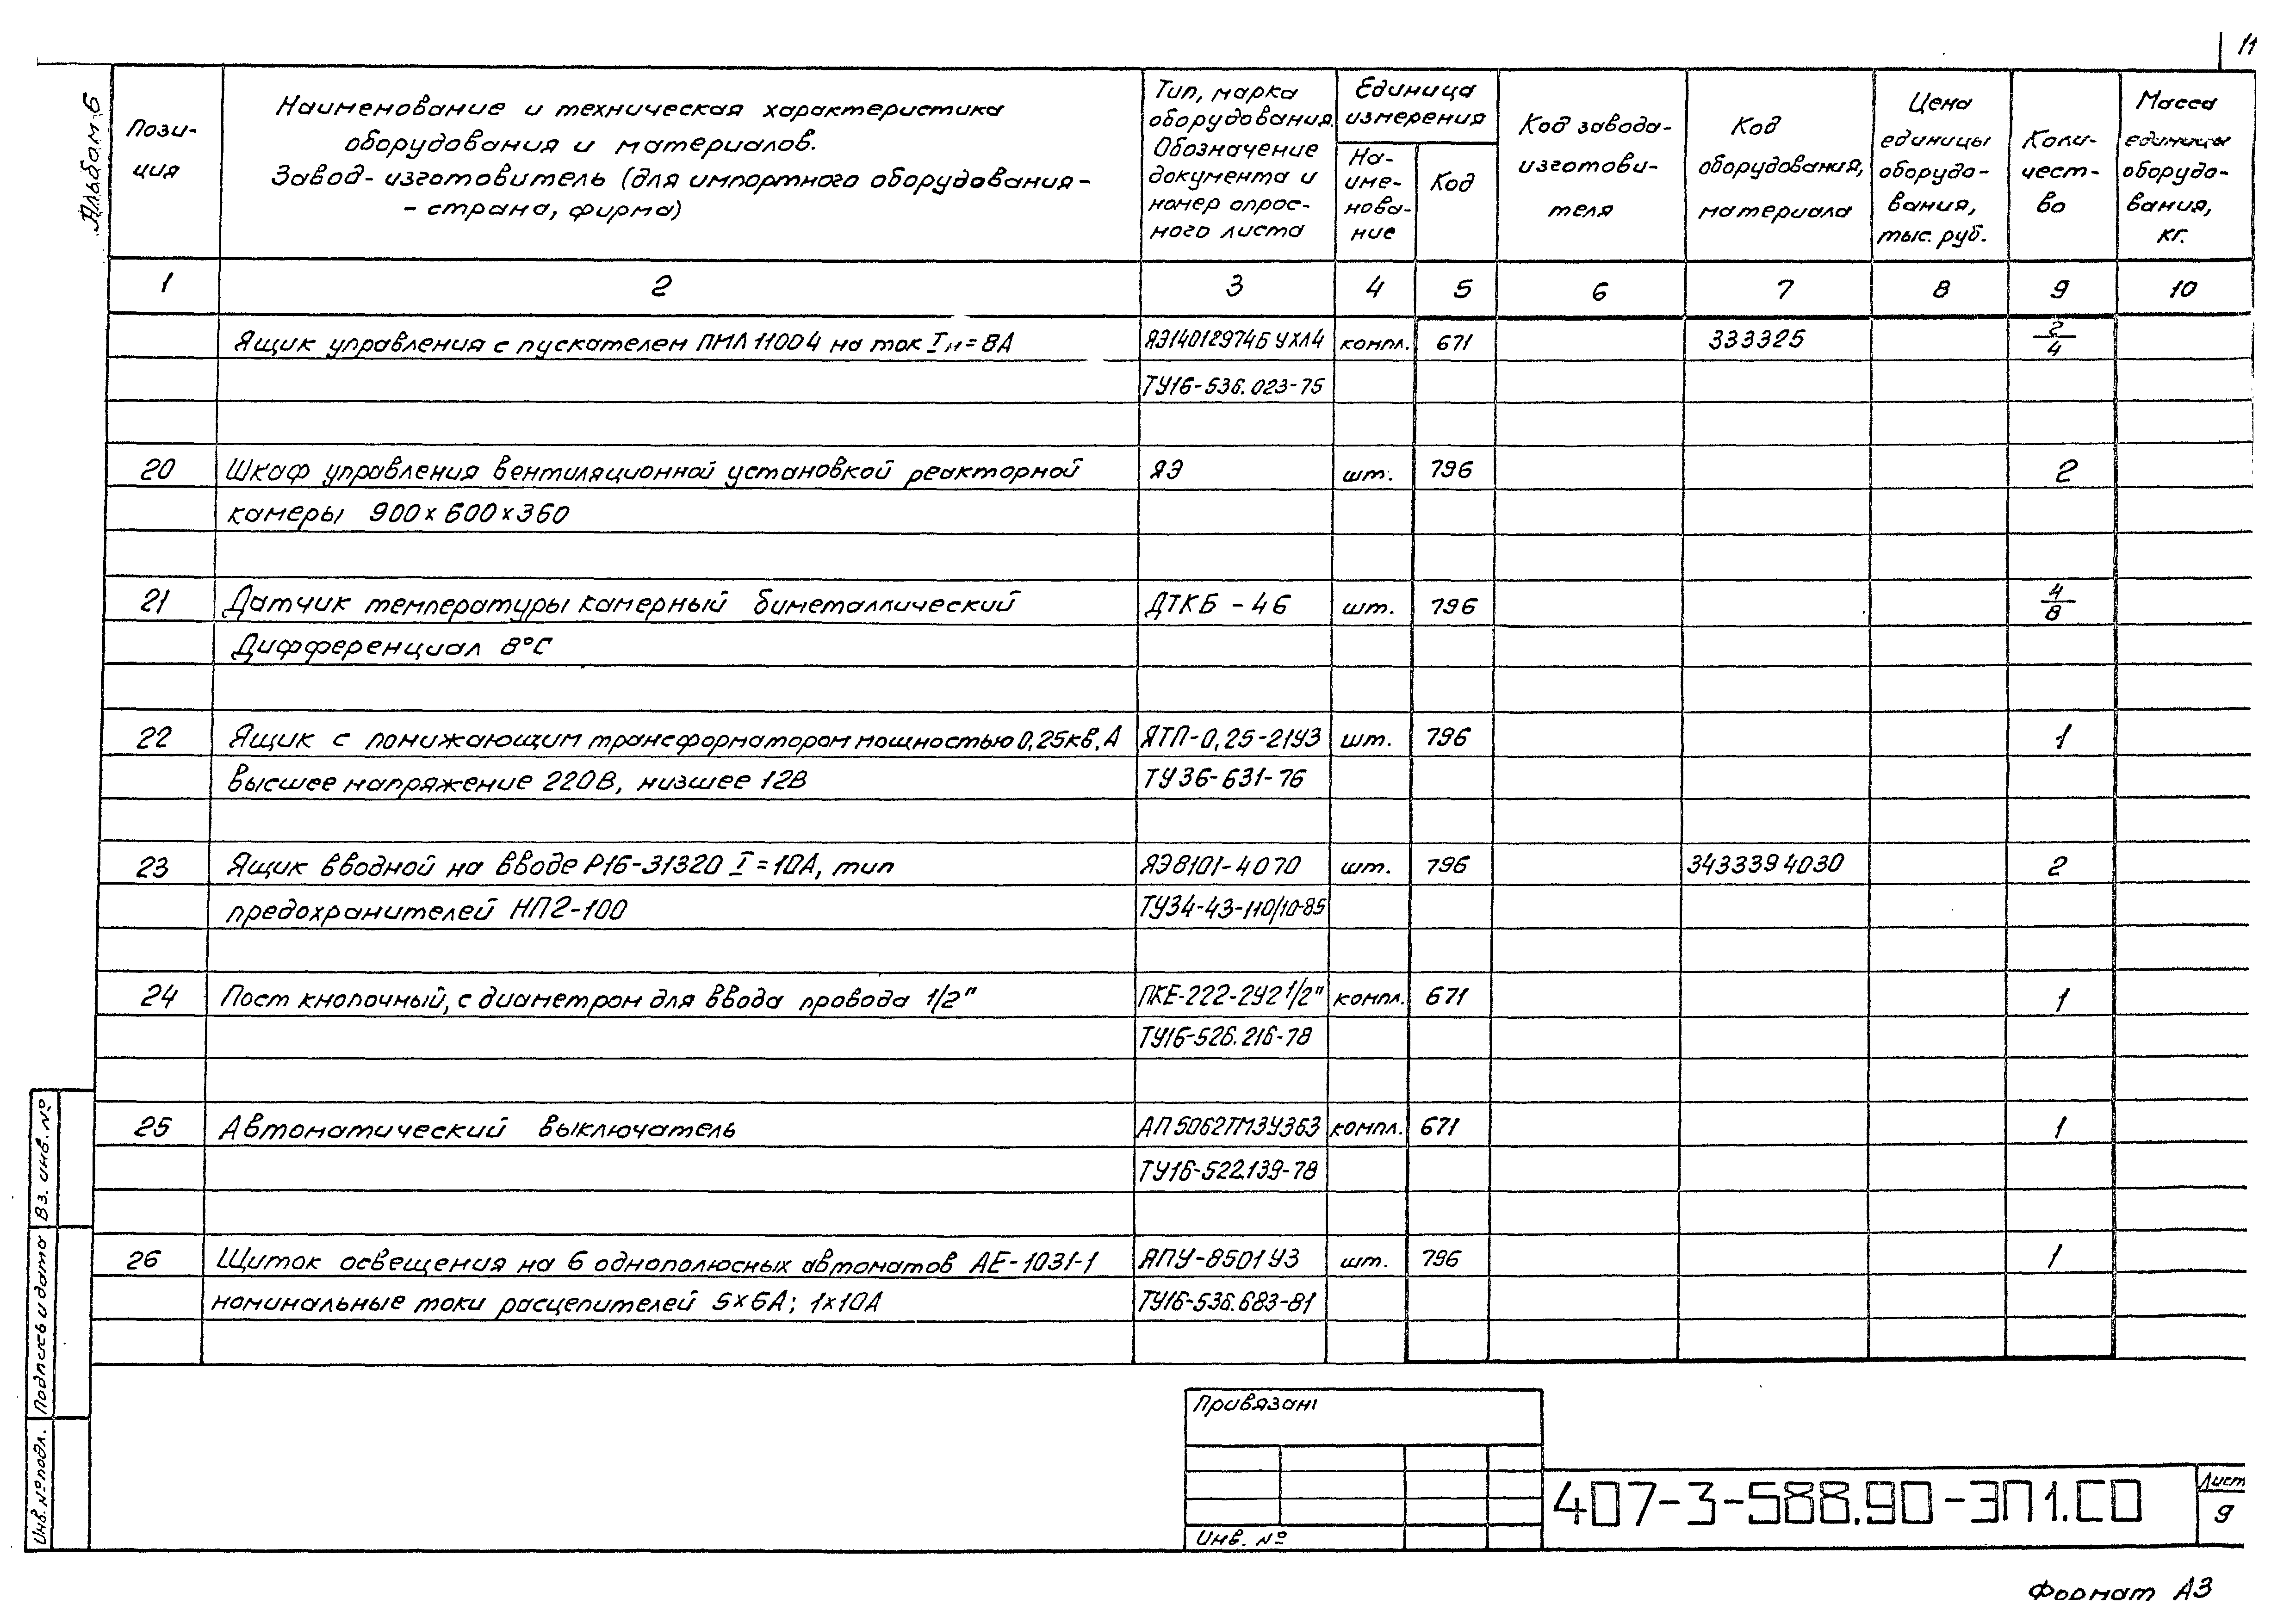 11
Альбом 6
Пози-
ция
Наименование и техническая характеристика
оборудования и материалов.
Завод-изготовитель (для импортного оборудования-
- страна, фирма)
Тип, марка
оборудования.
Обозначение
документа и
номер опрос-
ного листа
Единица
измерения
На-
име-
нова-
ние
Код
Код завода-
изготови-
теля
Код
оборудования,
материала
Цена
единицы
оборудо-
вания,
тыс. руб.
Коли-
чест-
во
Масса
единицы
оборудо-
вания,
кг.
1 2 3 4 5 6 7 8 9 10
Ящик управления с пускателем ПМЛ 11004 на ток Iн = 8А ЯЭ14012974Б УХЛ4 компл. 671 333325 2/4
ТУ16-536.023-75
20 Шкаф управления вентиляционной установкой реакторной ЯЭ шт. 796 2
камеры 900×600×360
21 Датчик температуры камерный биметаллический ДТКБ - 46 шт. 796 4/8
Дифференциал 8°С
22 Ящик с понижающим трансформатором мощностью 0,25кв.А ЯТП-0,25-21У3 шт. 796 1
высшее напряжение 220В, низшее 12В ТУ36-631-76
23 Ящик вводной на вводе Р16-31320 I = 10А, тип ЯЭ8101-4070 шт. 796 3433394030 2
предохранителей НП2-100 ТУ34-43-110/10-85
24 Пост кнопочный, с диаметром для ввода провода 1/2" ПКЕ-222-2У2 1/2" компл. 671 1
ТУ16-526.216-78
25 Автоматический выключатель АП5062ТМ3У363 компл. 671 1
ТУ16-522.139-78
26 Щиток освещения на 6 однополюсных автоматов АЕ-1031-1 ЯПУ-8501 У3 шт. 796 1
номинальные токи расцепителей 5×6А; 1×10А ТУ16-536.683-81
Вз. инв. №
Подпись и дата
Инв. № подл.
Привязан
Инв. №
407-3-588.90-ЭП1.СО
Лист
9
Формат А3